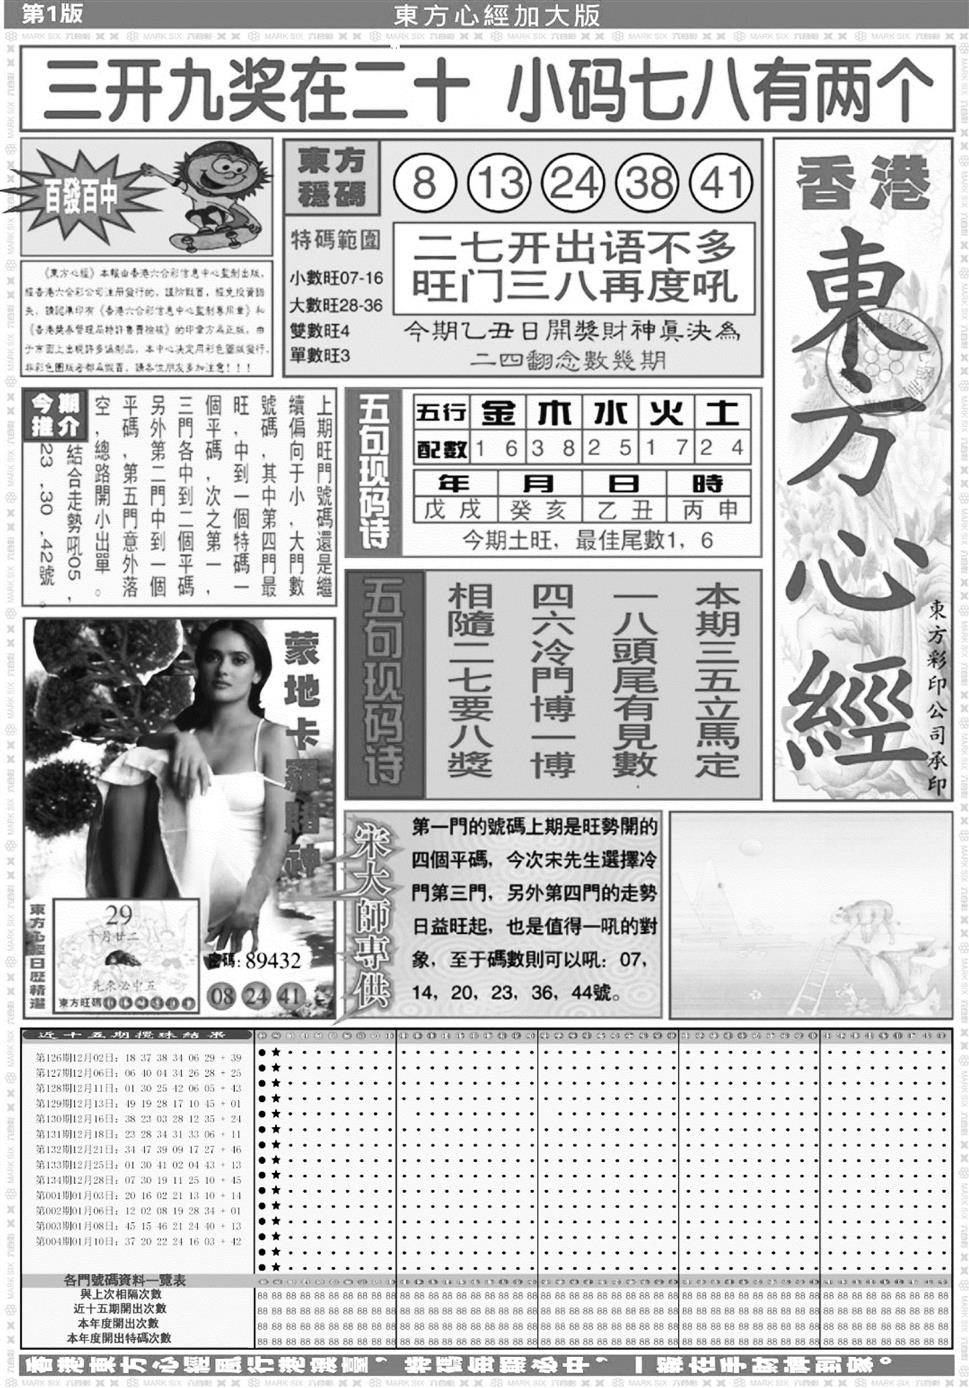 第1版
東方心經加大版
三开九奖在二十 小码七八有两个
百發百中
《東方心經》本報由香港六合彩信息中心監制出版，
經香港六合彩公司注册發行的，謹防假冒，經免投資損
失，請認準印有《香港六合彩信息中心監制專用章》和
《香港獎券管理局特許售賣檢核》的印章方爲正版，由
于市面上出現許多偽制品，本中心决定用彩色圖版發行，
非彩色圖版者都爲假冒，請各位朋友多加注意！！！
東方
穩碼
8 13 24 38 41
特碼範圍
小數旺07-16
大數旺28-36
雙數旺4
單數旺3
二七开出语不多
旺门三八再度吼
今期乙丑日開獎財神真決為
二四翻念數幾期
香港
東方心經
東方彩印公司承印
今期
推介
上期旺門號碼還是繼
續偏向于小，大門數
號碼，其中第四門最
旺，中到一個特碼一
個平碼，次之第一，
三門各中到二個平碼，
另外第二門中到一個
平碼，第五門意外落
空，總路開小出單。
結合走勢吼05，
23，30，42號。
五句现码诗
五行 金 木 水 火 土
配數 1 6 3 8 2 5 1 7 2 4
年 月 日 時
戊戌 癸亥 乙丑 丙申
今期土旺，最佳尾數1，6
五句现码诗
本期三五立馬定
一八頭尾有見數
四六冷門博一博
相隨二七要八獎
蒙地卡羅賭神
29
十月廿二
先來必中五
東方旺碼
東方心經日歷精選
密碼：89432
08 24 41
宋大師專供
第一門的號碼上期是旺勢開的
四個平碼，今次宋先生選擇冷
門第三門，另外第四門的走勢
日益旺起，也是值得一吼的對
象，至于碼數則可以吼：07，
14，20，23，36，44號。
近十五期攪珠結果
第126期12月02日：18 37 38 34 06 29 + 39
第127期12月06日：06 40 04 34 26 28 + 25
第128期12月11日：01 30 25 42 06 05 + 43
第129期12月13日：49 19 28 17 10 45 + 01
第130期12月16日：38 23 03 28 12 35 + 24
第131期12月18日：23 28 34 31 33 06 + 11
第132期12月21日：34 47 39 09 17 27 + 46
第133期12月25日：01 30 41 02 04 43 + 13
第134期12月28日：07 30 19 11 25 10 + 45
第001期01月03日：20 16 02 21 13 10 + 14
第002期01月06日：12 02 08 19 28 34 + 01
第003期01月08日：45 15 46 21 24 40 + 13
第004期01月10日：37 20 22 24 16 03 + 42
各門號碼資料一覽表
與上次相隔次數
近十五期開出次數
本年度開出次數
本年度開出特碼次數
香港東方心經風行港澳臺，特碼每期必中，一報在手財神到家。